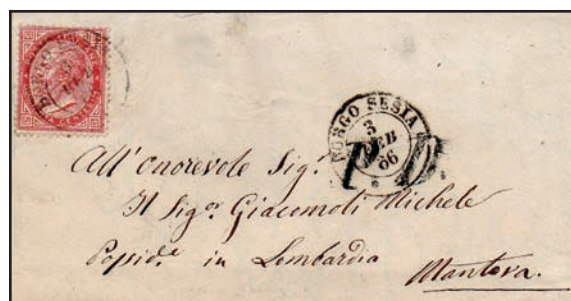 BORGO SESIA
3
FEB
66
All'onorevole Sig.r
Il Sig.or Giacomoli Michele
Possid.e in Lombardia
Mantova.